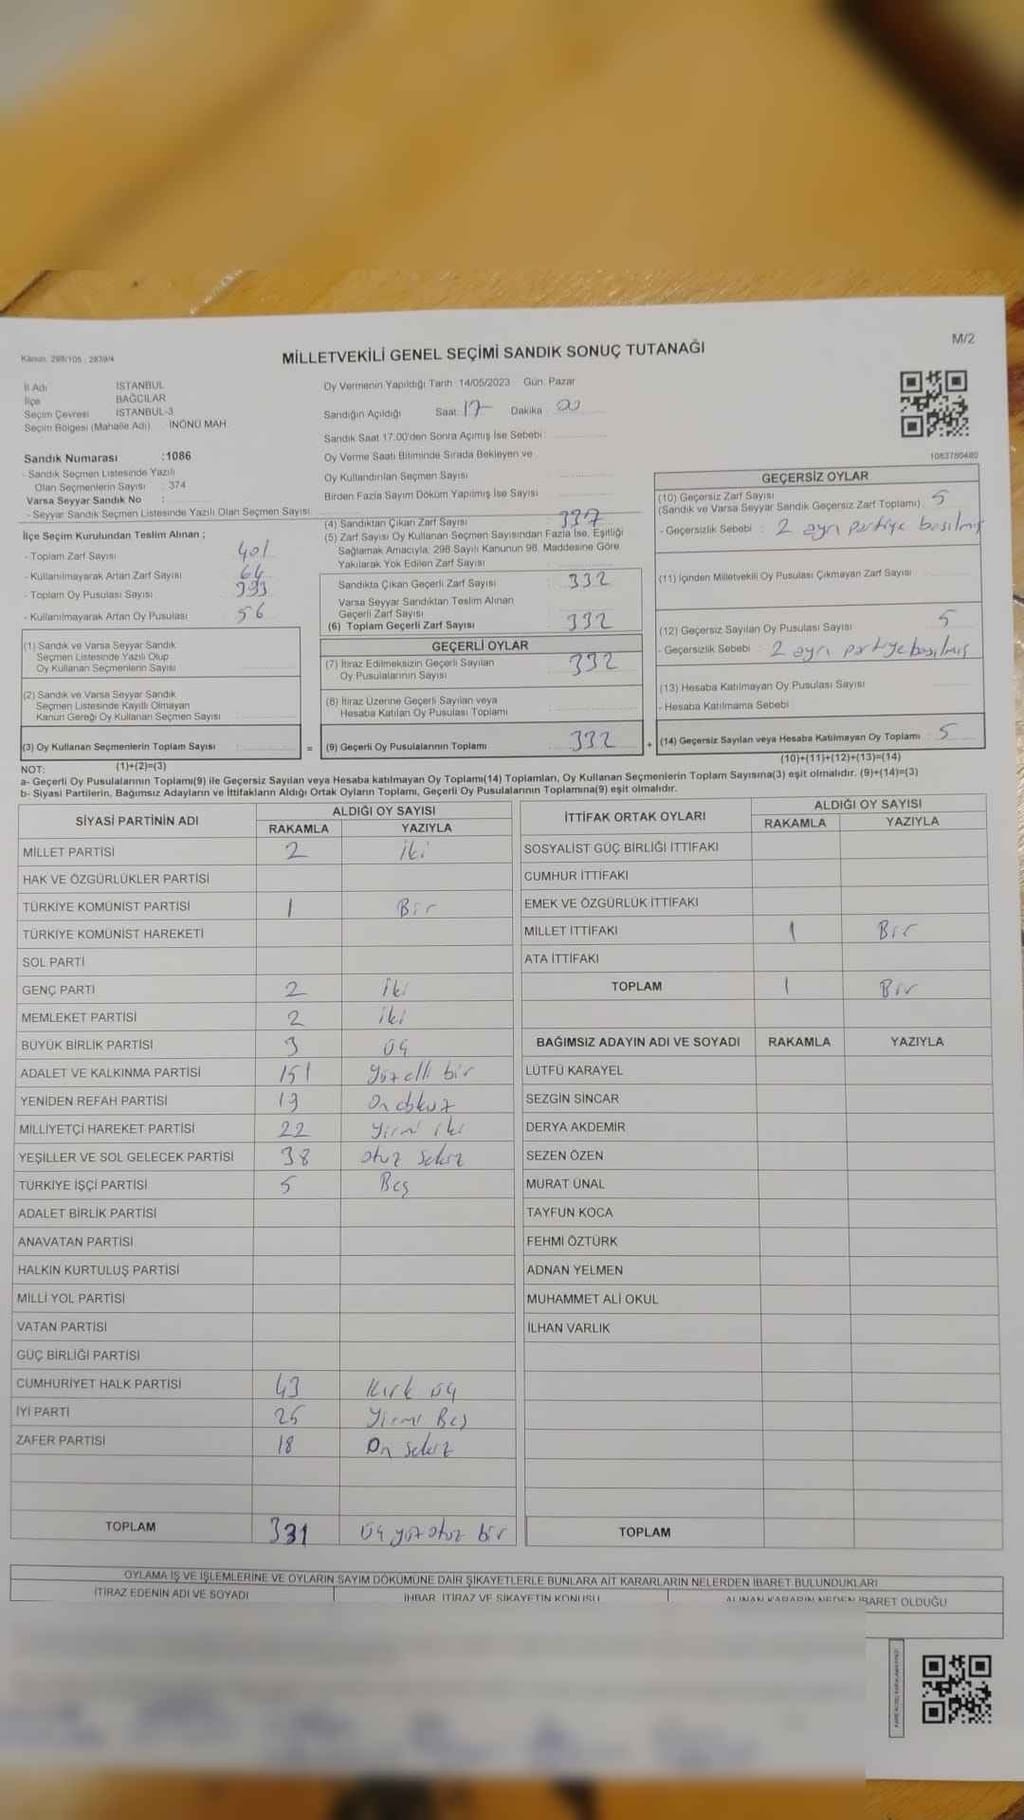 M/2
Kanun: 298/105 - 2839/4
MİLLETVEKİLİ GENEL SEÇİMİ SANDIK SONUÇ TUTANAĞI
İl Adı : İSTANBUL
İlçe BAĞCILAR
Seçim Çevresi İSTANBUL-3
Seçim Bölgesi (Mahalle Adı) İNÖNÜ MAH
Sandık Numarası :1086
- Sandık Seçmen Listesinde Yazılı
Olan Seçmenlerin Sayısı : 374
Varsa Seyyar Sandık No :
- Seyyar Sandık Seçmen Listesinde Yazılı Olan Seçmen Sayısı
Oy Vermenin Yapıldığı Tarih : 14/05/2023 Gün: Pazar
Sandığın Açıldığı Saat: 17 Dakika 00
Sandık Saat 17.00'den Sonra Açımış İse Sebebi :
Oy Verme Saati Bitiminde Sırada Bekleyen ve
Oy Kullandırılan Seçmen Sayısı
Birden Fazla Sayım Döküm Yapılmış İse Sayısı
1083780480
İlçe Seçim Kurulundan Teslim Alınan ;
- Toplam Zarf Sayısı 401
- Kullanılmayarak Artan Zarf Sayısı 64
- Toplam Oy Pusulası Sayısı 393
- Kullanılmayarak Artan Oy Pusulası 56
(1) Sandık ve Varsa Seyyar Sandık
Seçmen Listesinde Yazılı Olup
Oy Kullanan Seçmenlerin Sayısı
(2) Sandık ve Varsa Seyyar Sandık
Seçmen Listesinde Kayıtlı Olmayan
Kanun Gereği Oy Kullanan Seçmen Sayısı
(3) Oy Kullanan Seçmenlerin Toplam Sayısı =
(1)+(2)=(3)
(4) Sandıktan Çıkan Zarf Sayısı 337
(5) Zarf Sayısı Oy Kullanan Seçmen Sayısından Fazla İse, Eşitliği
Sağlamak Amacıyla, 298 Sayılı Kanunun 98. Maddesine Göre
Yakılarak Yok Edilen Zarf Sayısı
Sandıkta Çıkan Geçerli Zarf Sayısı 332
Varsa Seyyar Sandıktan Teslim Alınan
Geçerli Zarf Sayısı
(6) Toplam Geçerli Zarf Sayısı 332
GEÇERLİ OYLAR
(7) İtiraz Edilmeksizin Geçerli Sayılan
Oy Pusulalarının Sayısı 332
(8) İtiraz Üzerine Geçerli Sayılan veya
Hesaba Katılan Oy Pusulası Toplamı
(9) Geçerli Oy Pusulalarının Toplamı 332 +
GEÇERSİZ OYLAR
(10) Geçersiz Zarf Sayısı
(Sandık ve Varsa Seyyar Sandık Geçersiz Zarf Toplamı) 5
- Geçersizlik Sebebi : 2 ayrı partiye basılmış
(11) İçinden Milletvekili Oy Pusulası Çıkmayan Zarf Sayısı
(12) Geçersiz Sayılan Oy Pusulası Sayısı 5
- Geçersizlik Sebebi 2 ayrı partiye basılmış
(13) Hesaba Katılmayan Oy Pusulası Sayısı
- Hesaba Katılmama Sebebi
(14) Geçersiz Sayılan veya Hesaba Katılmayan Oy Toplamı 5
(10)+(11)+(12)+(13)=(14)
NOT:
a- Geçerli Oy Pusulalarının Toplamı(9) ile Geçersiz Sayılan veya Hesaba katılmayan Oy Toplamı(14) Toplamları, Oy Kullanan Seçmenlerin Toplam Sayısına(3) eşit olmalıdır. (9)+(14)=(3)
b- Siyasi Partilerin, Bağımsız Adayların ve İttifakların Aldığı Ortak Oyların Toplamı, Geçerli Oy Pusulalarının Toplamına(9) eşit olmalıdır.
SİYASİ PARTİNİN ADI ALDIĞI OY SAYISI
RAKAMLA YAZIYLA
MİLLET PARTİSİ 2 iki
HAK VE ÖZGÜRLÜKLER PARTİSİ
TÜRKİYE KOMÜNİST PARTİSİ 1 Bir
TÜRKİYE KOMÜNİST HAREKETİ
SOL PARTİ
GENÇ PARTİ 2 iki
MEMLEKET PARTİSİ 2 iki
BÜYÜK BİRLİK PARTİSİ 3 üç
ADALET VE KALKINMA PARTİSİ 151 Yüz elli bir
YENİDEN REFAH PARTİSİ 19 On dokuz
MİLLİYETÇİ HAREKET PARTİSİ 22 Yirmi iki
YEŞİLLER VE SOL GELECEK PARTİSİ 38 otuz sekiz
TÜRKİYE İŞÇİ PARTİSİ 5 Beş
ADALET BİRLİK PARTİSİ
ANAVATAN PARTİSİ
HALKIN KURTULUŞ PARTİSİ
MİLLİ YOL PARTİSİ
VATAN PARTİSİ
GÜÇ BİRLİĞİ PARTİSİ
CUMHURİYET HALK PARTİSİ 43 Kırk üç
İYİ PARTİ 25 Yirmi Beş
ZAFER PARTİSİ 18 On sekiz
TOPLAM 331 üç yüz otuz bir
İTTİFAK ORTAK OYLARI ALDIĞI OY SAYISI
RAKAMLA YAZIYLA
SOSYALİST GÜÇ BİRLİĞİ İTTİFAKI
CUMHUR İTTİFAKI
EMEK VE ÖZGÜRLÜK İTTİFAKI
MİLLET İTTİFAKI 1 Bir
ATA İTTİFAKI
TOPLAM 1 Bir
BAĞIMSIZ ADAYIN ADI VE SOYADI RAKAMLA YAZIYLA
LÜTFÜ KARAYEL
SEZGİN SİNCAR
DERYA AKDEMİR
SEZEN ÖZEN
MURAT ÜNAL
TAYFUN KOCA
FEHMİ ÖZTÜRK
ADNAN YELMEN
MUHAMMET ALİ OKUL
İLHAN VARLIK
TOPLAM
OYLAMA İŞ VE İŞLEMLERİNE VE OYLARIN SAYIM DÖKÜMÜNE DAİR ŞİKAYETLERLE BUNLARA AİT KARARLARIN NELERDEN İBARET BULUNDUKLARI
İTİRAZ EDENİN ADI VE SOYADI İHBAR, İTİRAZ VE ŞİKAYETİN KONUSU ALINAN KARARIN NEDEN İBARET OLDUĞU